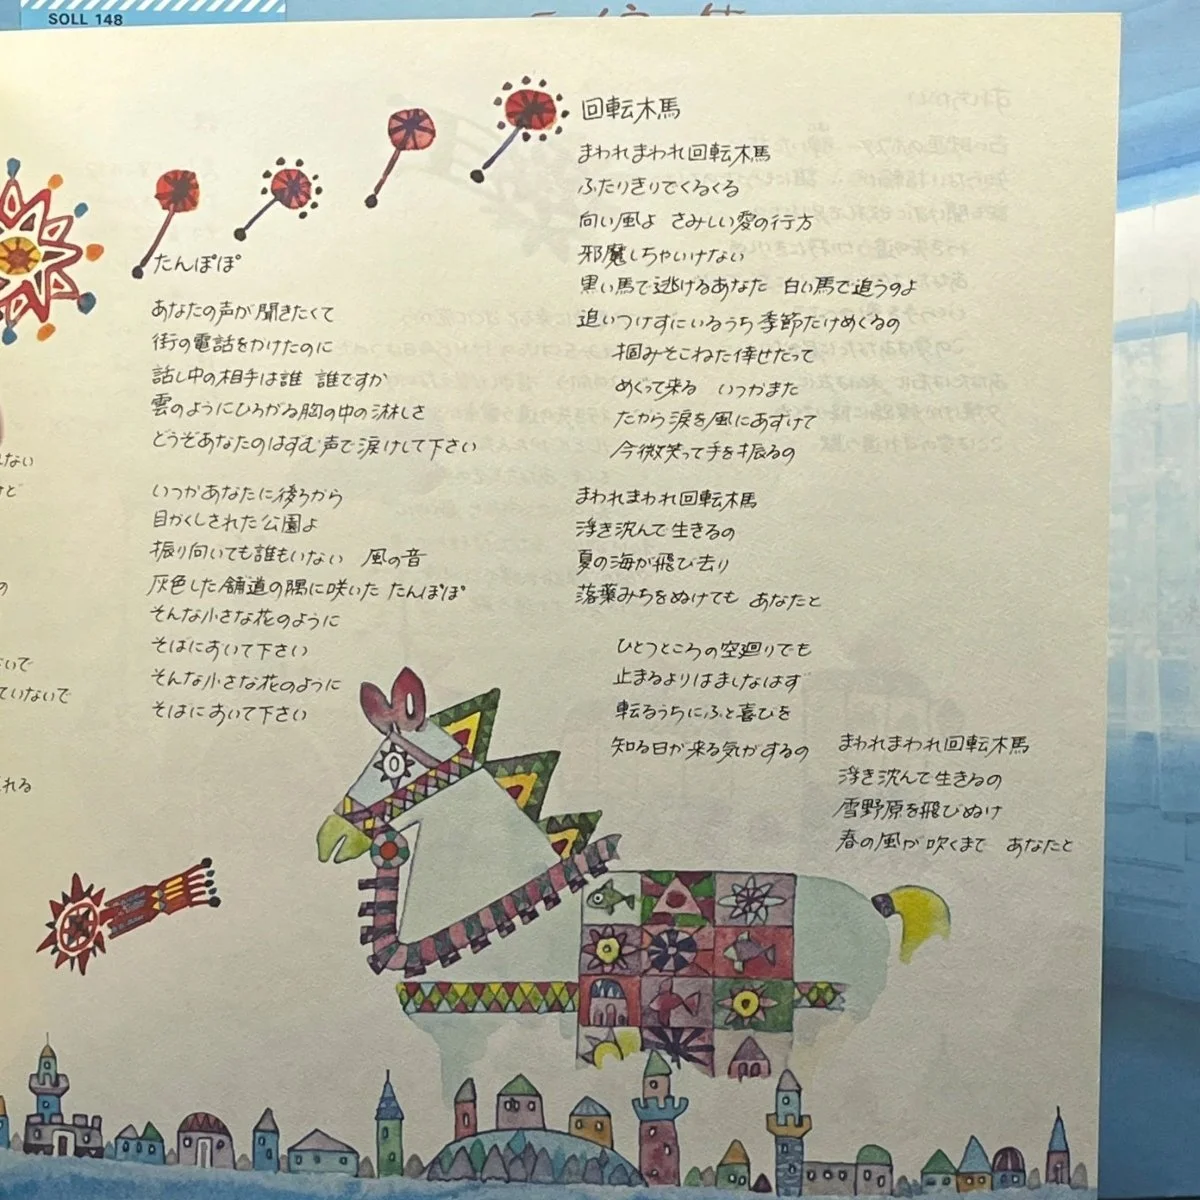 SOLL 148
たんぽぽ
あなたの声が聞きたくて
街の電話をかけたのに
話し中の相手は誰　誰ですか
雲のようにひろがる胸の中の淋しさ
どうぞあなたのはずむ声で涙けして下さい
いつかあなたに後ろから
目かくしされた公園よ
振り向いても誰もいない　風の音
灰色した舗道の隅に咲いた たんぽぽ
そんな小さな花のように
そばにおいて下さい
そんな小さな花のように
そばにおいて下さい
回転木馬
まわれまわれ回転木馬
ふたりきりでくるくる
向い風よ さみしい愛の行方
邪魔しちゃいけない
黒い馬で逃げるあなた 白い馬で追うのよ
追いつけずにいるうち季節だけめくるの
掴みそこねた倖せだって
めぐって来る　いつかまた
だから涙を風にあずけて
今微笑って手を振るの
まわれまわれ回転木馬
浮き沈んで生きるの
夏の海が飛び去り
落葉みちをぬけても あなたと
ひとつところの空廻りでも
止まるよりはましなはず
転るうちにふと喜びを
知る日が来る気がするの
まわれまわれ回転木馬
浮き沈んで生きるの
雪野原を飛びぬけ
春の風が吹くまで あなたと
ない
けど
の
いで
ていないで
れる